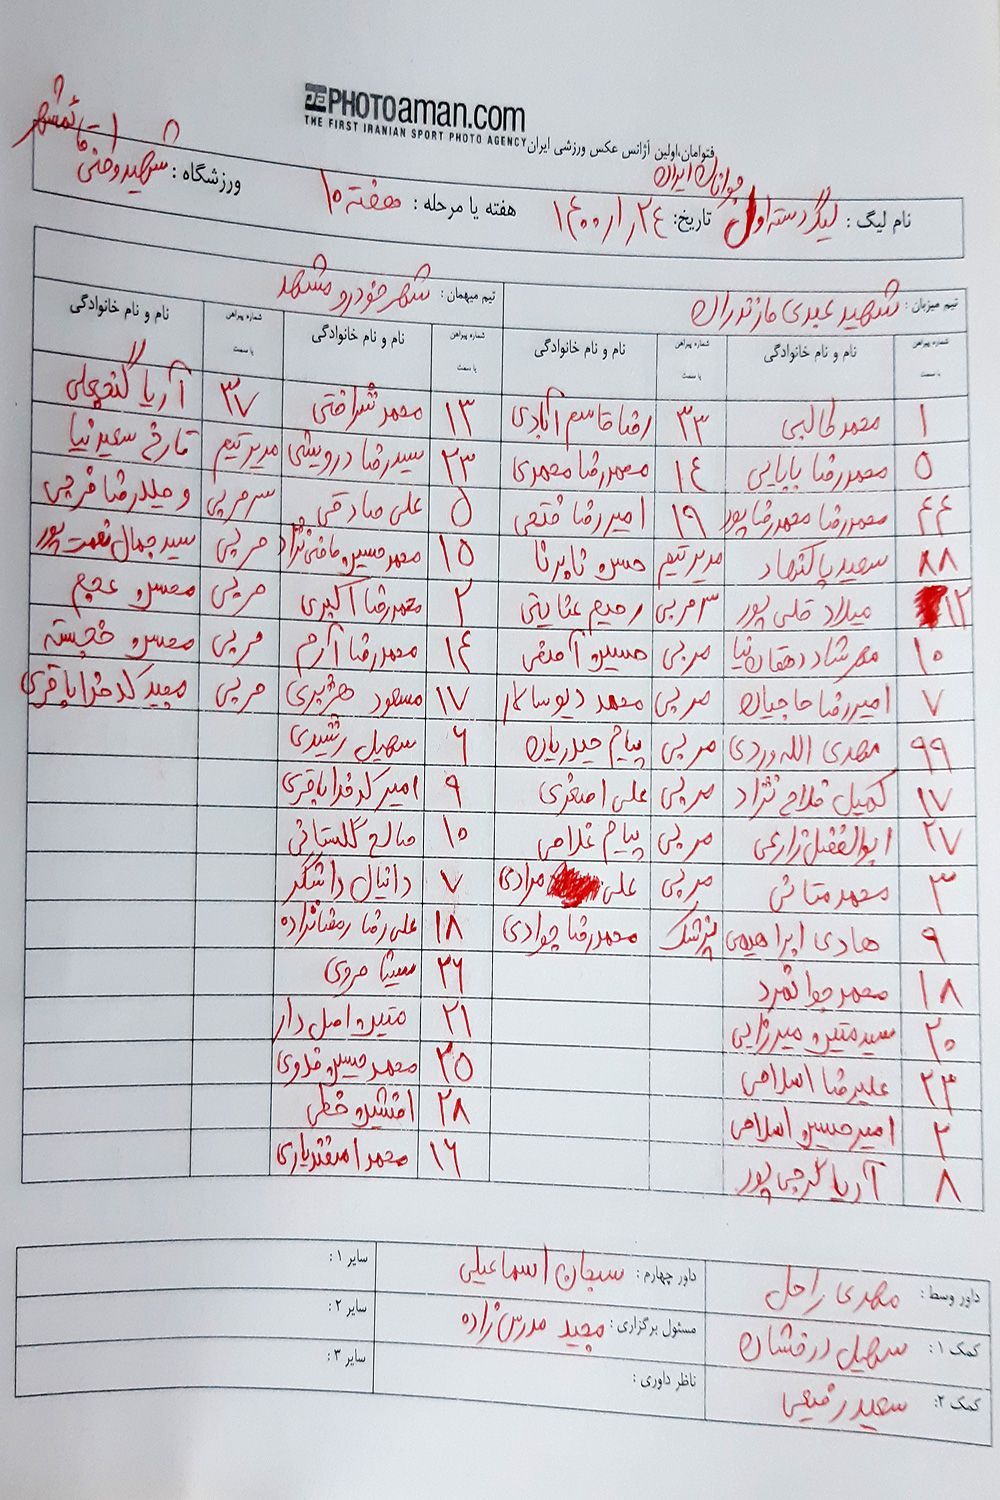 PHOTOaman.com
THE FIRST IRANIAN SPORT PHOTO AGENCY
فتوامان،اولین آژانس عکس ورزشی ایران
نام لیگ : لیگ دسته اول جوانان ایران تاریخ: ۱۴۰۰/۱/۲۴ هفته یا مرحله : هفته ۱۰ ورزشگاه : شهید وطنی ۱ - قائمشهر
تیم میزبان : شهید عبدی مازندران تیم میهمان : شهر خودرو مشهد
شماره پیراهن یا سمت نام و نام خانوادگی شماره پیراهن یا سمت نام و نام خانوادگی شماره پیراهن یا سمت نام و نام خانوادگی شماره پیراهن یا سمت نام و نام خانوادگی
۱ محمد طالبی ۳۳ رضا قاسم آبادی ۱۳ محمد شرافتی ۳۷ آریا گنجعلی
۵ محمدرضا بابایی ۱۴ محمدرضا محمدی ۲۳ سیدرضا درویشی مدیر تیم فارخ سعیدنیا
۴۴ محمدرضا محمدرضاپور ۱۹ امیررضا فتحی ۵ علی صادقی سرمربی وحیدرضا فرجی
۸۸ سعید پاکنهاد مدیر تیم حسن ۱۵ محمد حسین مربی سید جمال نعمت پور
۱۲ میلاد قلی پور سرمربی رحیم عنایتی ۲ محمدرضا اکبری مربی محسن عجم
۱۰ مهرشاد دهقان نیا مربی حسین آصفی ۱۴ محمدرضا آرم مربی محسن خجسته
۷ امیررضا حاجیان مربی محمد دیوسالار ۱۷ مسعود هژبری مربی مجید کدخداباقری
۹۹ مهدی الله وردی مربی پیام حیدریان ۶ سهیل رشیدی
۱۷ کمیل فلاح نژاد مربی علی اصغری ۹ امیر کدخداباقری
۲۷ ابوالفضل زارعی مربی پیام غلامی ۱۰ صالح گلستانی
۳ محمد متانی مربی علی مرادی ۷ دانیال داشگر
۹ هادی ابراهیمی پزشک محمدرضا جوادی ۱۸ علی رضا رمضانزاده
۱۸ محمد جوانمرد ۳۶ سینا مروی
۲۰ سید متین میرزایی ۲۱ متین اصل دار
۲۳ علیرضا اسلامی ۳۵ محمد حسین فدوی
۲ امیرحسین اسلامی ۲۸ افشین خطی
۸ آریا گرجی پور ۱۶ محمد اسفندیاری
داور وسط : مهدی راحل داور چهارم : سبحان اسماعیلی سایر ۱ :
کمک ۱ : سهیل درفشان مسئول برگزاری : مجید مدرس زاده سایر ۲ :
کمک ۲: سعید رفیعی ناظر داوری : سایر ۳ :